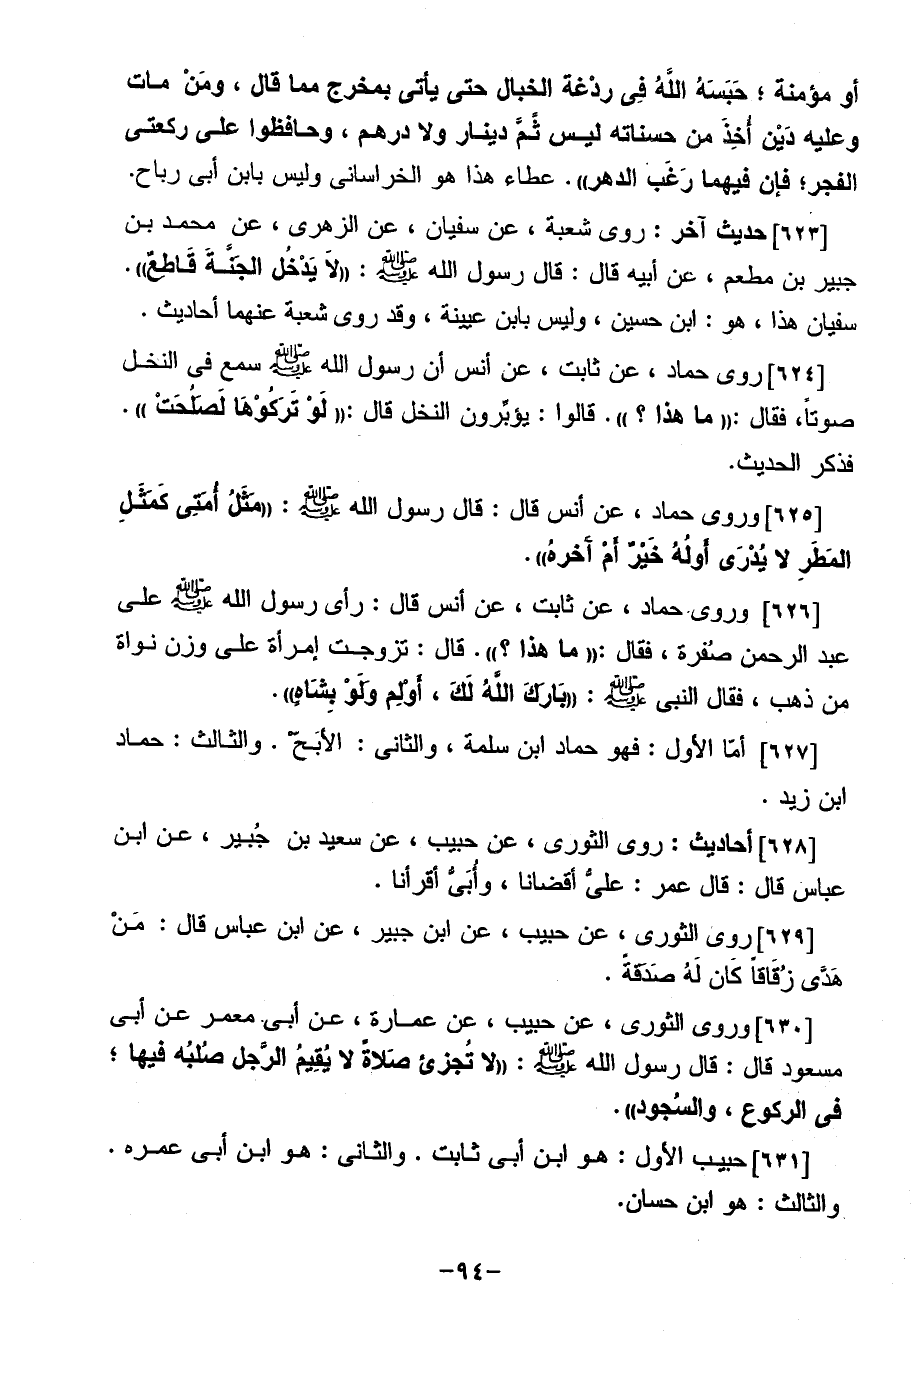 أو مؤمنة ؛ حَبَسَهُ اللَّهُ فِى ردْغة الخبال حتى يأتى بمخرج مما قال ، ومَنْ مات
وعليه دَيْن أُخِذَ من حسناته ليس ثَّم دينار ولا درهم ، وحافظوا على ركعتى
الفجر؛ فإن فيهما رَغَب الدهر)). عطاء هذا هو الخراسانى وليس بابن أبى رباح.
[٦٢٣]حديث آخر : روى شعبة ، عن سفيان ، عن الزهرى ، عن محمد بن
جبير بن مطعم ، عن أبيه قال : قال رسول الله ﷺ : ((لاَ يَدْخُل الجنَّةَ قَاطعٌ)).
سفيان هذا ، هو : ابن حسين ، وليس بابن عيينة ، وقد روى شعبة عنهما أحاديث .
[٦٢٤]روى حماد ، عن ثابت ، عن أنس أن رسول الله ﷺ سمع فى النخل
صوتاً، فقال :(( ما هذا ؟ )). قالوا : يؤبِّرون النخل قال :(( لَوْ تَركُوْهَا لَصلُحَتْ )).
فذكر الحديث.
[٦٢٥]وروى حماد ، عن أنس قال : قال رسول الله ﷺ : ((مَثَلُ أُمَتِى كَمَثَلِ
المَطَرِ لا يُدْرَى أَولُهُ خَيْرٌ أَمْ آخرهُ)).
[٦٢٦] وروى حماد ، عن ثابت ، عن أنس قال : رأى رسول الله ﷺ على
عبد الرحمن صُفرة ، فقال :(( ما هذا ؟)). قال : تزوجت إمرأة على وزن نواة
من ذهب ، فقال النبى ﷺ : ((بَارَكَ اللَّهُ لَكَ ، أَولِم ولَوْ بِشَاهِ)).
[٦٢٧] أمّا الأول : فهو حماد ابن سلمة ، والثانى : الأبَحّ . والثالث : حماد
ابن زيد .
[٦٢٨]أحاديث : روى الثورى ، عن حبيب ، عن سعيد بن جُبير ، عن ابن
عباس قال : قال عمر : علىُّ أقضانا ، وأُبَىُّ أقرأنا .
[٦٢٩]روى الثورى ، عن حبيب ، عن ابن جبير ، عن ابن عباس قال : مَنْ
هَدَّى زُقَاقاً كَان لَهُ صدَقةً .
[٦٣٠]وروى الثورى ، عن حبيب ، عن عمارة ، عن أبى معمر عن أبى
مسعود قال : قال رسول الله ﷺ : ((لا تُجزئ صلاةً لا يُقيمُ الرَّجل صُلبُه فيها ؛
فى الركوع ، والسُجود)).
[٦٣١]حبيب الأول : هو ابن أبى ثابت . والثانى : هو ابن أبى عمره .
والثالث : هو ابن حسان.
-٩٤-